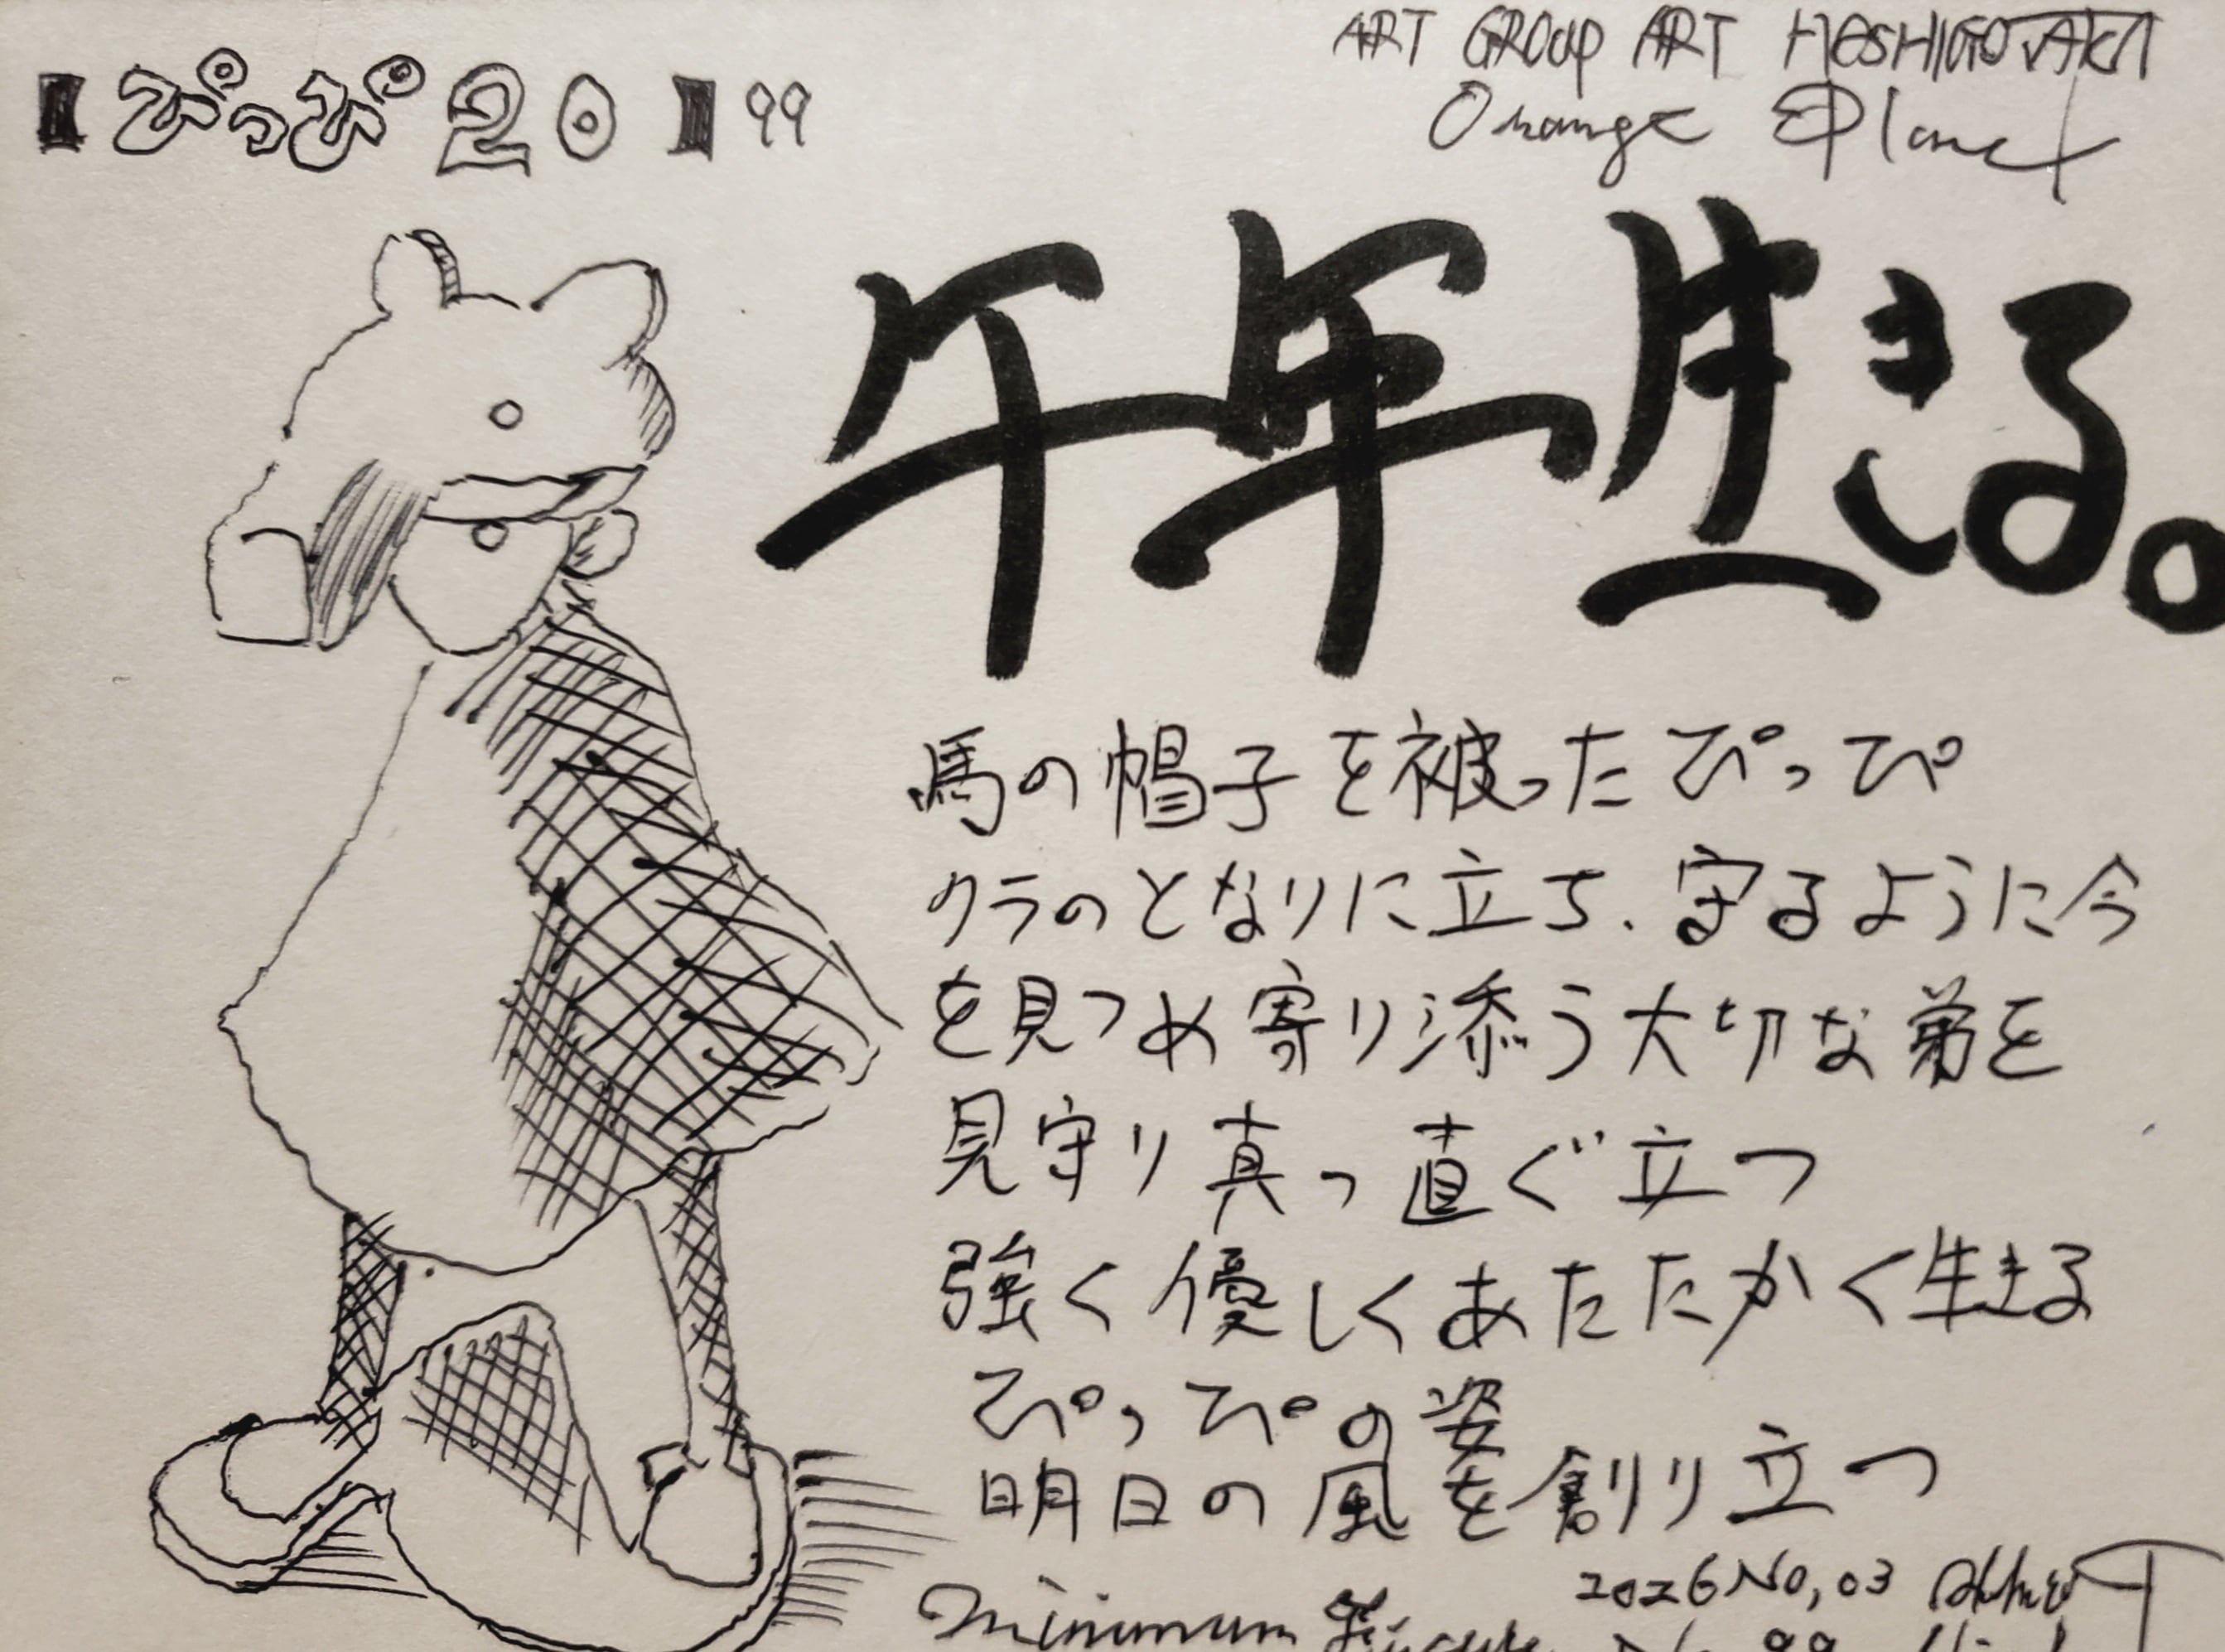 【ぴっぴ20】99
ART GROUP ART HOSHIGOTAKA
Orange Planet
午年生きる。
馬の帽子を被ったぴっぴ
クラのとなりに立ち、守るように今
を見つめ寄り添う大切な弟を
見守り真っ直ぐ立つ
強く優しくあたたかく生きる
ぴっぴの姿
明日の風を創り立つ
2026 No,03
minimum
No 99